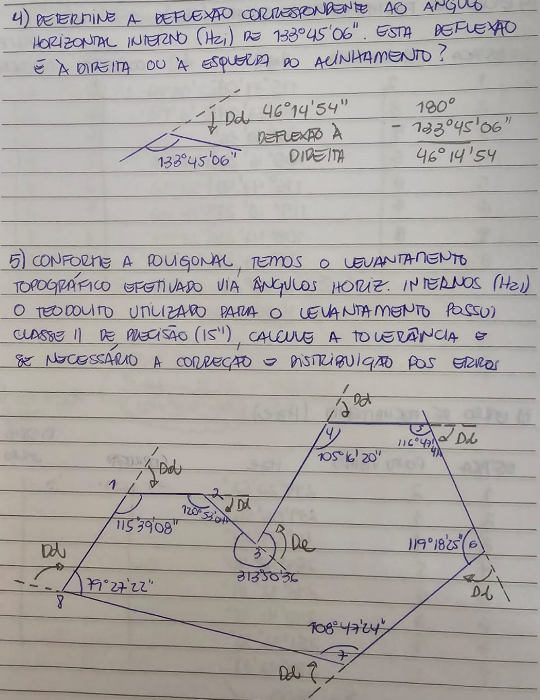 4) DETERMINE A DEFLEXÃO CORRESPONDENTE AO ÂNGULO
HORIZONTAL INTERNO (Hzi) DE 133°45'06". ESTA DEFLEXÃO
É À DIREITA OU À ESQUERDA DO ALINHAMENTO?
Dd 46°14'54"
DEFLEXÃO À
DIREITA
180°
- 133°45'06"
46°14'54
133°45'06"
5) CONFORME A POLIGONAL, TEMOS O LEVANTAMENTO
TOPOGRÁFICO EFETIVADO VIA ÂNGULOS HORIZ. INTERNOS (Hzi)
O TEODOLITO UTILIZADO PARA O LEVANTAMENTO POSSUI
CLASSE II DE PRECISÃO (15"), CALCULE A TOLERÂNCIA E
SE NECESSÁRIO A CORREÇÃO E DISTRIBUIÇÃO DOS ERROS
Dd
4
105°16'20"
5
Dd
1
Dd
115°39'08"
2
Dd
3
De
313°50'36
119°18'25"
6
Dd
Dd
79°27'22"
8
108°47'24"
7
Dd